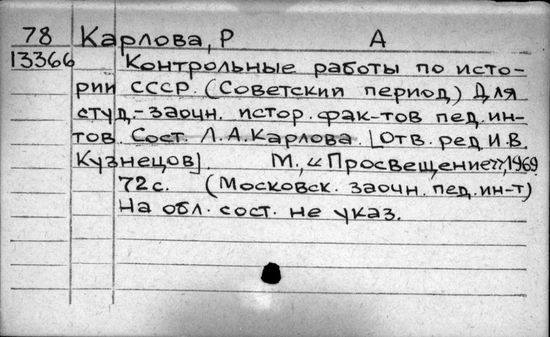 78 Карлова, Р А
13366 Контрольные работы по исто-
рии СССР. (Советский период) Для
студ.-заочн. истор. фак-тов пед. ин-
тов. Сост. Л.А.Карлова. [Отв. ред И.В.
Кузнецов]. М., «Просвещение», 1969
72 с. (Московск. заочн. пед. ин-т)
На обл. сост. не указ.